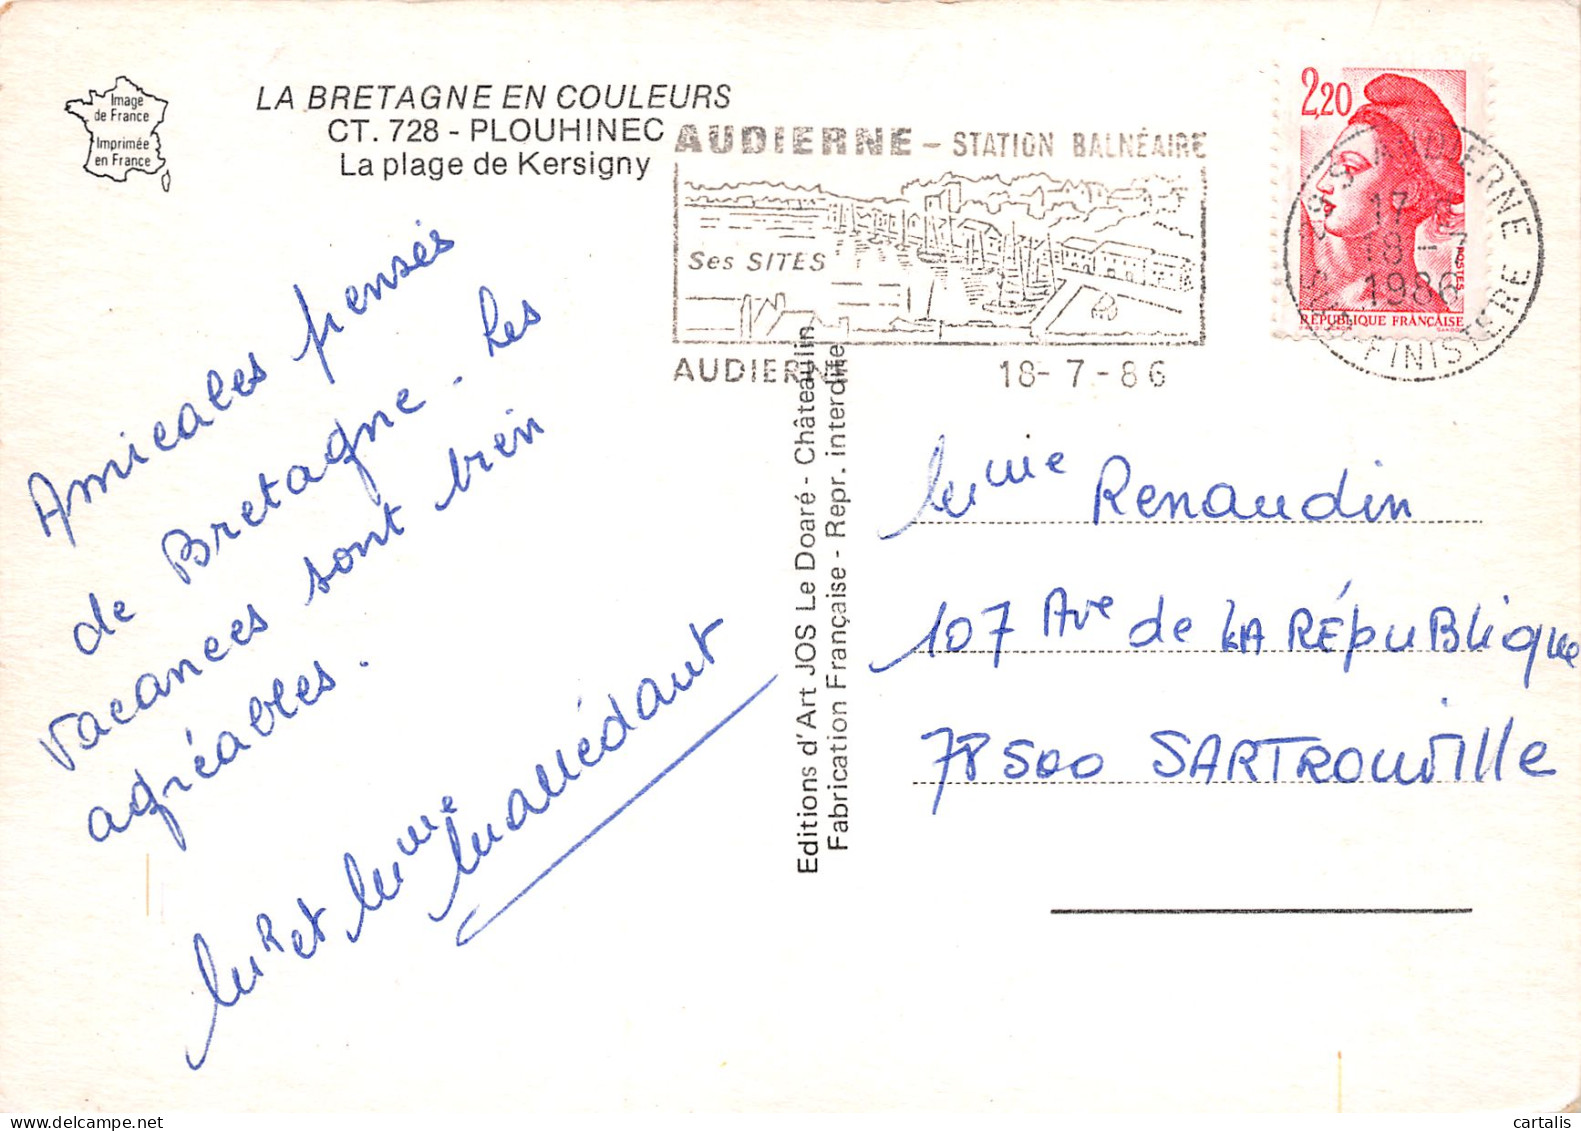 Image
de France
Imprimée
en France
LA BRETAGNE EN COULEURS
CT. 728 - PLOUHINEC
La plage de Kersigny
AUDIERNE - STATION BALNÉAIRE
Ses SITES
AUDIERNE 18-7-86
2,20
POSTES
RÉPUBLIQUE FRANÇAISE
29S AUDIERNE
17
18-7
1986
FINISTERE
Amicales pensées
de Bretagne. Les
vacances sont bien
agréables.
Mr et Mme
Editions d'Art JOS Le Doaré - Châteaulin
Fabrication Française - Repr. interdite
Mme Renaudin
107 Ave de LA RÉpuBlique
78500 SARTROuville
cartalis